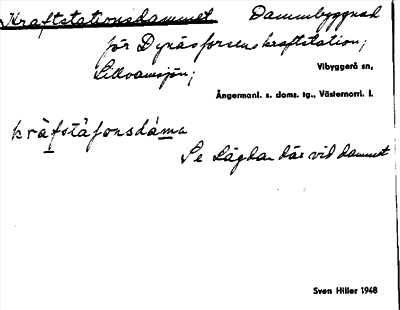 Kraftstationsdammet Dammbyggnad
för Dynäsforsens kraftstation;
Lillvamsjön; Vibyggerå sn,
Ångermanl. s. doms. tg., Västernorrl. l.
kràfstàfonsdáma
Se Lägdan där vid dammet
Sven Hiller 1948